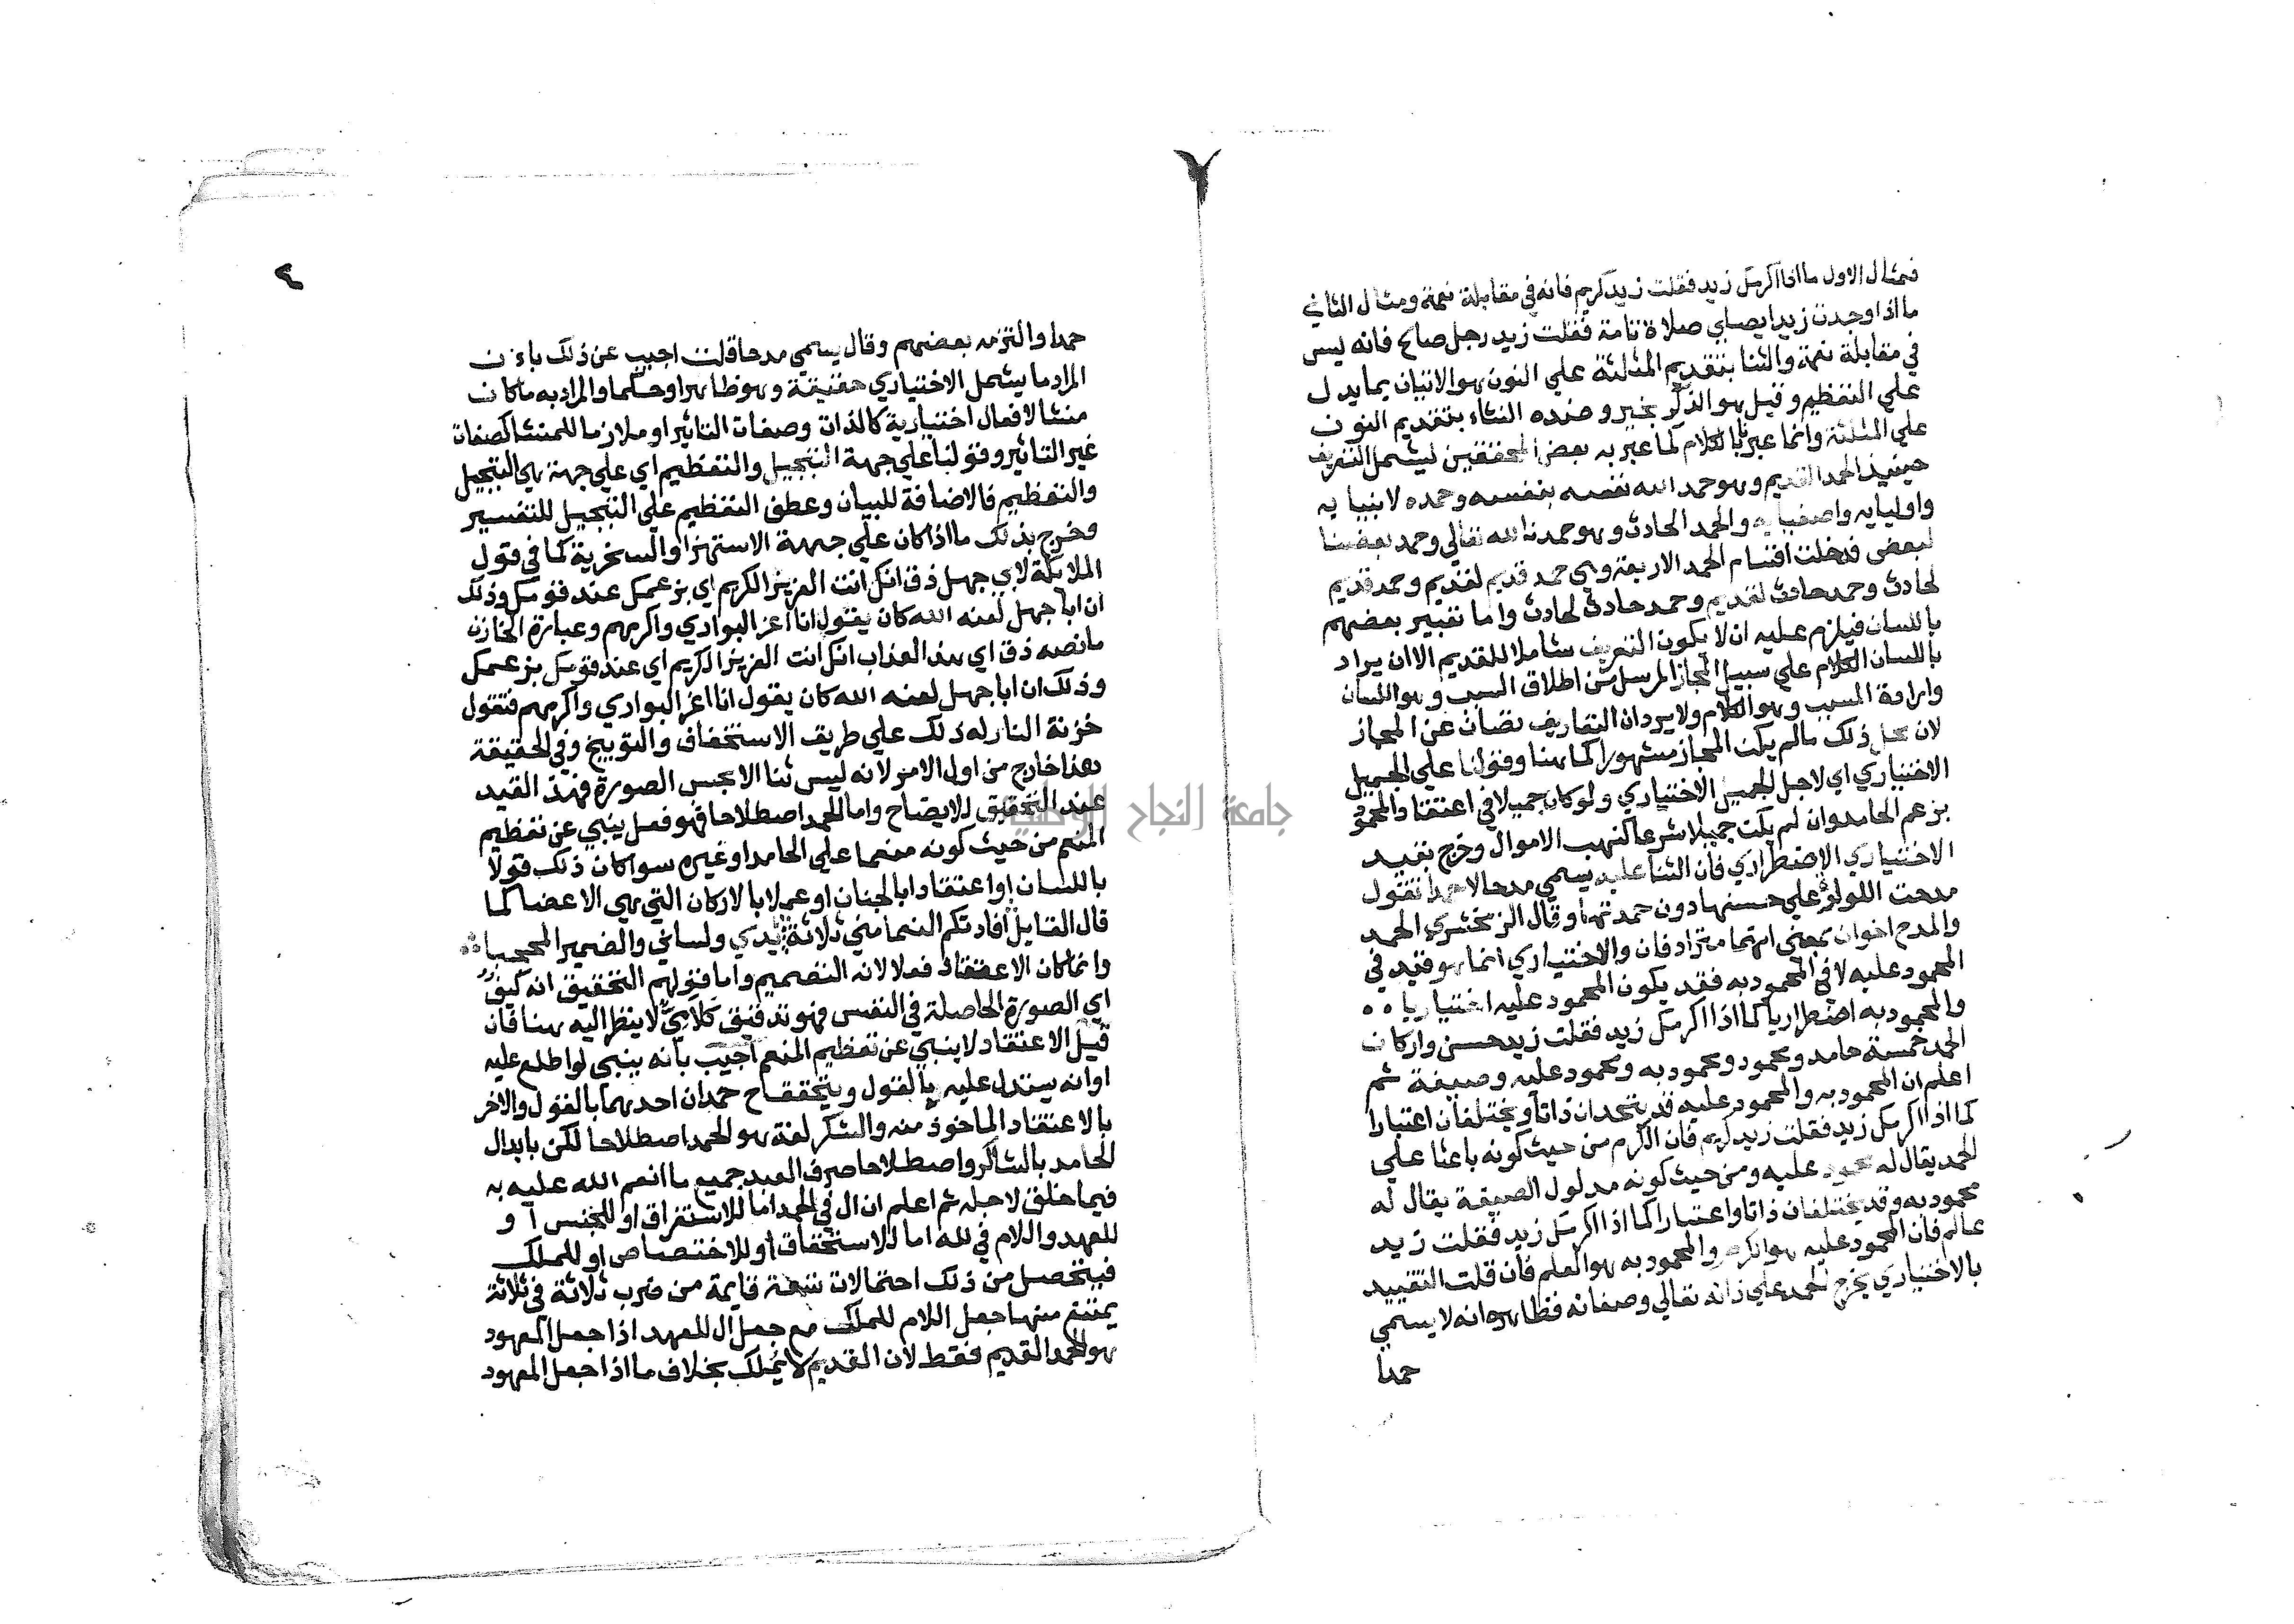 فمثال الاول ما اذا اكرمك زيد فقلت زيد كريم فانه في مقابلة نعمة ومثال الثاني
ما اذا وجدت زيدا يصلي صلاة تامة فقلت زيد رجل صالح فانه ليس
في مقابلة نعمة والثنا بتقديم المثلثة علي النون هو الاتيان بما يدل
علي التعظيم وقيل هو الذكر بخير وضده النثاء بتقديم النون
علي المثلثة وانما عبر بالكلام كما عبر به بعض المحققين ليشمل التعريف
حينيذ الحمد القديم وهو حمد الله نفسه بنفسه وحمده لانبيايه
واوليايه واصفيايه والحمد الحادث وهو حمدنا لله تعالي وحمد بعضنا
لبعض فدخلت اقسام الحمد الاربعة وهي حمد قديم لقديم وحمد قديم
لحادث وحمد حادث لقديم وحمد حادث لحادث واما تعبير بعضهم
باللسان فيلزم عليه ان لا يكون التعريف شاملا للقديم الا ان يراد
باللسان الكلام علي سبيل المجاز المرسل من اطلاق السبب وهو اللسان
وارادة المسبب وهو الكلام ولا يرد ان التعاريف تصان عن المجاز
لان محل ذلك مالم يكن المجاز مشهورا كما هنا وقولنا علي الجميل
الاختياري اي لاجل الجميل الاختياري ولو كان جميلا في اعتقاد المحمود
بزعم الحامد وان لم يكن جميلا شرعا كنهب الاموال وخرج بقيد
الاختياري الاضطراري فان الثنا عليه يسمي مدحا لا حمدا تقول
مدحت اللولؤ علي حسنها دون حمدتها وقال الزمخشري الحمد
والمدح اخوان بمعني انهما مترادفان والاختياري انما هو قيد في
المحمود عليه لا في المحمود به فقد يكون المحمود عليه اختياريا ه ه
والمحمود به اضطراريا كما اذا اكرمك زيد فقلت زيد حسن واركان
الحمد خمسة حامد ومحمود ومحمود به ومحمود عليه وصيغة ثم
اعلم ان المحمود به والمحمود عليه قد يتحدان ذاتا ويختلفان اعتبارا
كما اذا اكرمك زيد فقلت زيد كريم فان الكرم من حيث كونه باعثا علي
الحمد يقال له محمود عليه ومن حيث كونه مدلول الصيغة يقال له
محمود به وقد يختلفان ذاتا واعتبارا كما اذا اكرمك زيد فقلت زيد
عالم فان المحمود عليه هو الكرم والمحمود به هو العلم فان قلت التقييد
بالاختياري يخرج الحمد علي ذاته تعالي وصفاته فظاهره انه لا يسمي
حمدا
٢
حمدا والتزمه بعضهم وقال يسمي مدحا قلت اجيب عن ذلك باءن
المراد ما يشمل الاختياري حقيقة وهو ظاهر او حكما والمراد به ما كان
منشا لافعال اختيارية كالذات وصفات التاثير او ملازما للمنشا كصفات
غير التاثير وقولنا علي جهة التبجيل والتعظيم اي علي جهة هي التبجيل
والتعظيم فالاضافة للبيان وعطف التعظيم علي التبجيل للتفسير
وخرج بذلك ما اذا كان علي جهة الاستهزا والسخرية كما في قول
الملايكة لابي جهل ذق انك انت العزيز الكريم اي بزعمك عند قومك وذلك
ان ابا جهل لعنه الله كان يقول انا اعز البوادي واكرمهم وعبارة الخازن
ما نصه ذق اي هذا العذاب انك انت العزيز الكريم اي عند قومك بزعمك
وذلك ان ابا جهل لعنه الله كان يقول انا اعز البوادي واكرمهم فتقول
خزنة النار له ذلك علي طريق الاستخفاف والتوبيخ وفي الحقيقة
هذا خارج من اول الامر لانه ليس ثنا الا بحسب الصورة فهذا القيد
عند التحقيق للايضاح واما الحمد اصطلاحا فهو فعل ينبي عن تعظيم
المنعم من حيث كونه منعما علي الحامد او غيره سوا كان ذلك قولا
باللسان او اعتقادا بالجنان او عملا بالاركان التي هي الاعضا كما
قال القايل افادتكم النعما مني ثلاثة يدي ولساني والضمير المحجبا
وانما كان الاعتقاد فعلا لانه التصميم واما قولهم التحقيق انه كيف
اي الصورة الحاصلة في النفس فهو تدقيق كلامي لا ينظر اليه هنا فان
قيل الاعتقاد لا ينبي عن تعظيم المنعم اجيب بانه ينبي لو اطلع عليه
او انه يستدل عليه بالقول ويتحقق ح حمدان احدهما بالقول والاخر
بالاعتقاد الماخوذ منه والشكر لغة هو الحمد اصطلاحا لكن بابدال
الحامد بالشاكر واصطلاحا صرف العبد جميع ما انعم الله عليه به
فيما خلق لاجله ثم اعلم ان ال في الحمد اما للاستغراق او للجنس او
للعهد واللام في لله اما للاستحقاق او للاختصاص او للملك
فيتحصل من ذلك احتمالات تسعة قايمة من ضرب ثلاثة في ثلاثة
يمتنع منها جعل اللام للملك مع جعل ال للعهد اذا جعل المعهود
هو الحمد القديم فقط لان القديم لا يملك بخلاف ما اذا جعل المعهود
جامعة النجاح الوطنية